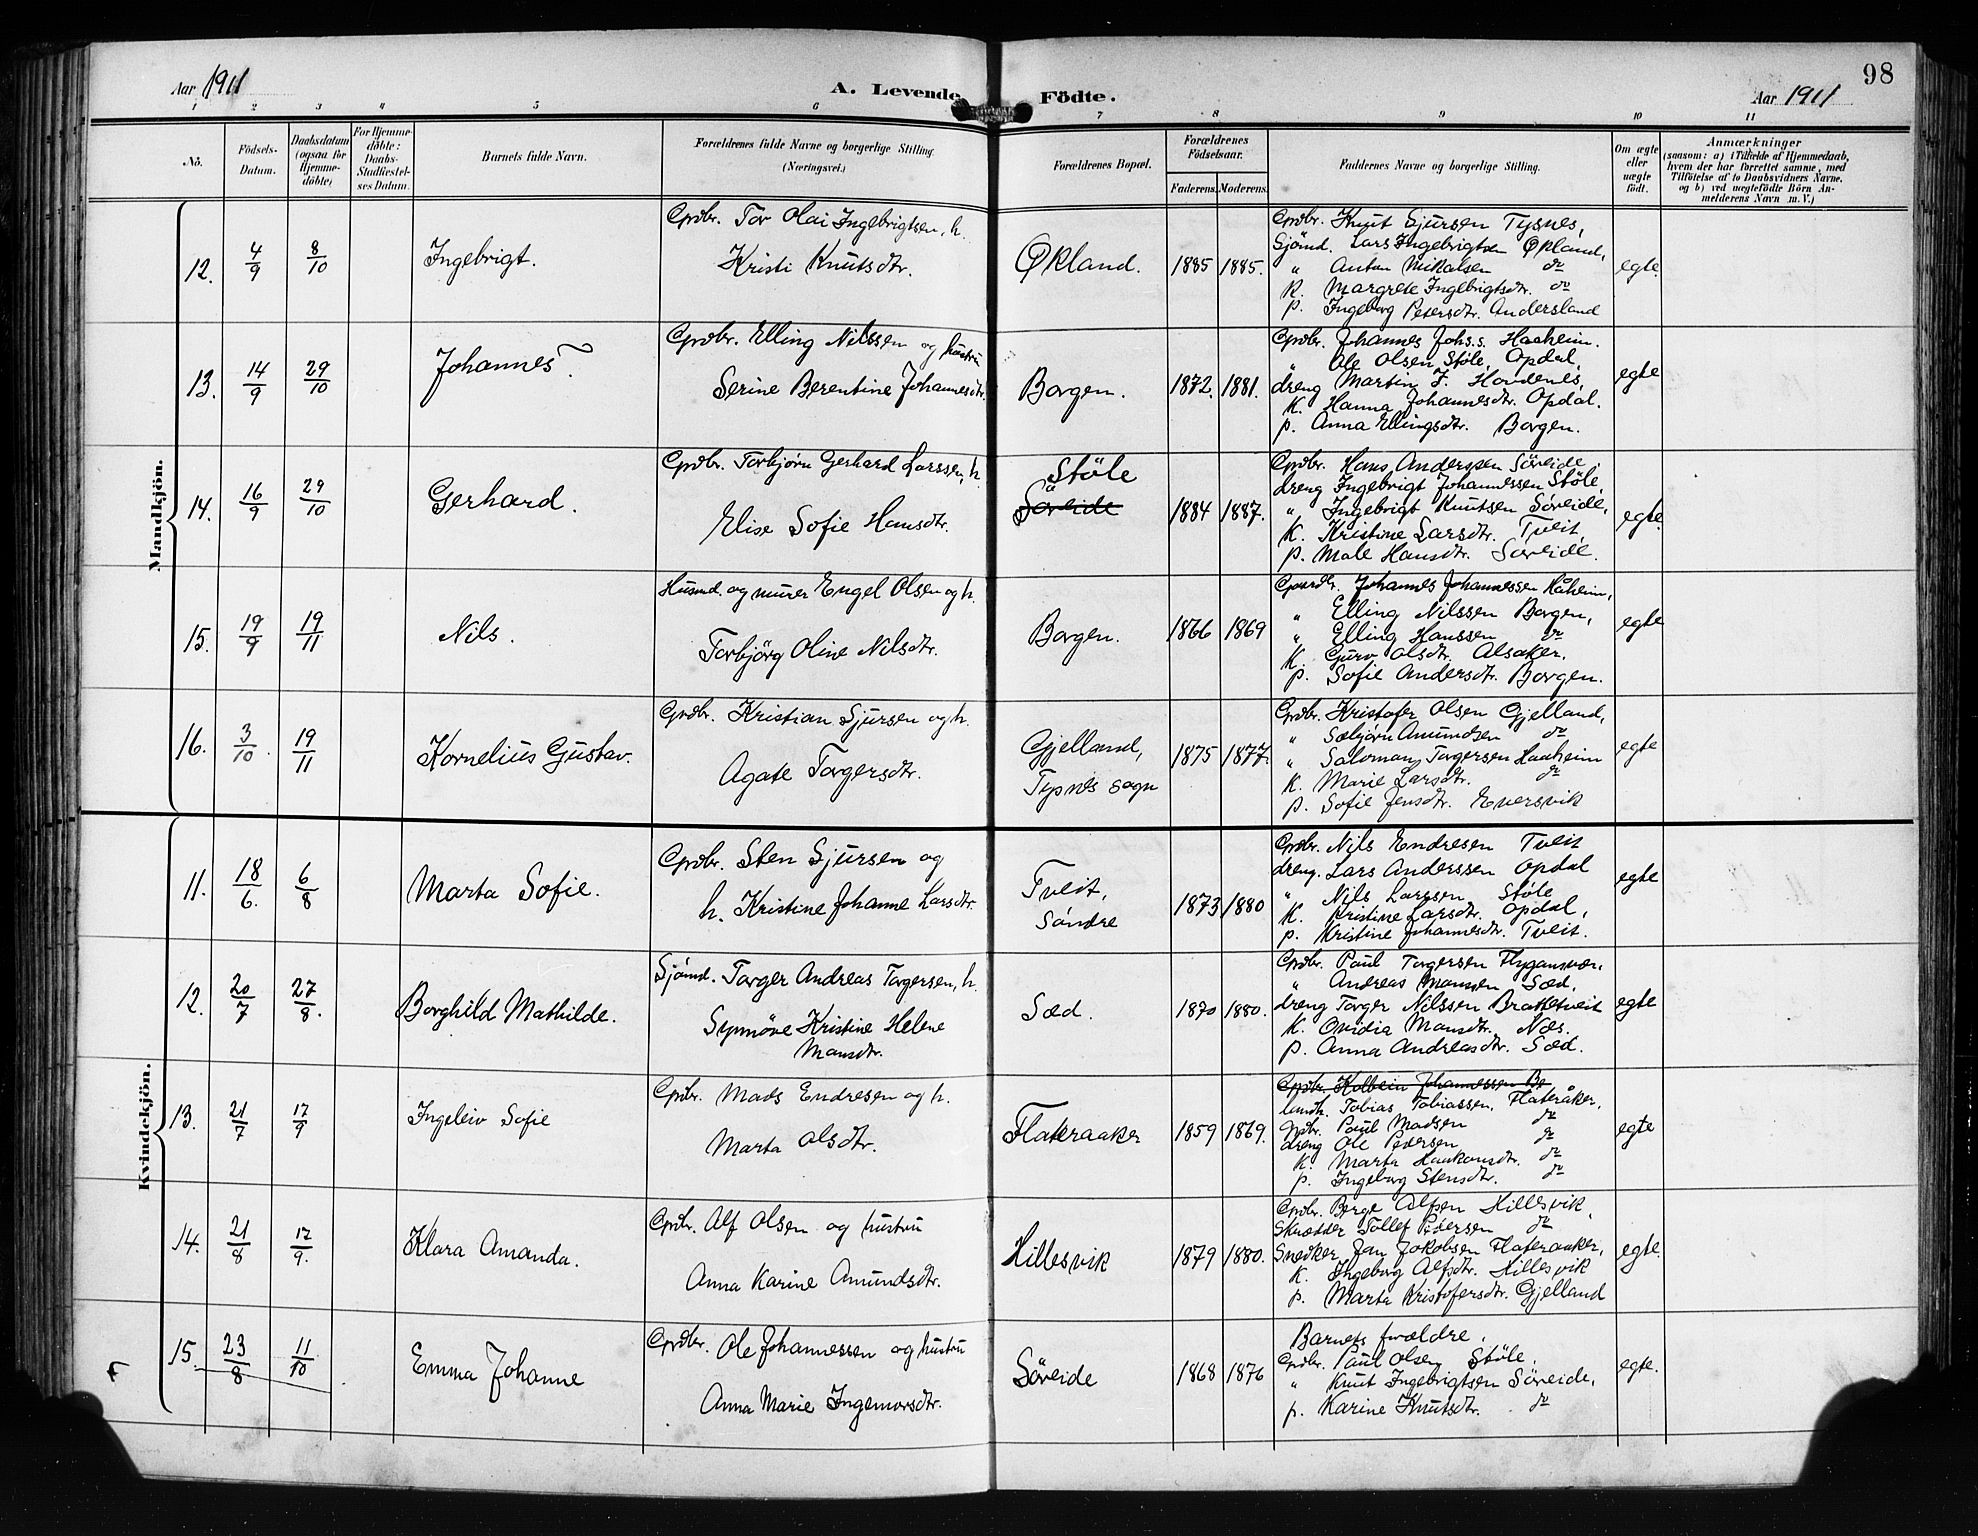 98
Aar 1911
A. Levende Födte.
Aar 1911
1 2 3 4 5 6 7 8 9 10 11
No.
Födsels-Datum.
Daabsdatum (ogsaa for Hjemme-döbte)
For Hjemme-döbte: Daabs-Stadfæstel-ses Datum.
Barnets fulde Navn.
Forældrenes fulde Navne og borgerlige Stilling
(Næringsvei.)
Forældrenes Bopæl.
Forældrenes Födselsaar.
Faderens. Moderens.
Faddernes Navne og borgerlige Stilling.
Om ægte eller uægte födt.
Anmærkninger
(saasom: a) i Tilfælde af Hjemmedaab,
hvem der har forrettet samme, med
Tilföielse af to Daabsvidners Navne.
og b) ved uægtefödte Börn An-
melderens Navn m. V.)
Mandkjön.
12. 4/9 8/10 Ingebrigt.
Grdbr. Tor Olai Ingebrigtsen, h.
Kristi Knutsdtr.
Økland. 1885 1885.
Grdbr. Knut Sjursen Tysnes,
Sjömd. Lars Ingebrigtsen Økland,
" Anton Mikalsen do
K. Margrete Ingebrigtsdtr. do
p. Ingeborg Petersdtr. Andersland
egte.
13. 14/9 29/10 Johannes.
Grdbr. Elling Nilssen og hustru
Serine Berentine Johannesdtr.
Borgen. 1872. 1881.
Grdbr. Johannes Johs.s. Haaheim.
" Ole Olsen Støle, Opdal,
dreng Martin J. Hovdenes,
K. Hanna Johannesdtr. Opdal.
p. Anna Ellingsdtr. Borgen.
egte
14. 16/9 29/10 Gerhard.
Grdbr. Torbjørn Gerhard Larssen, h.
Elise Sofie Hansdtr.
Støle
Søreide
1884 1887.
Grdbr. Hans Anderssen Søreide,
dreng Ingebrigt Johannessen Støle,
" Ingebrigt Knutsen Søreide,
K. Kristine Larsdtr. Tveit,
p. Male Hansdtr. Søreide.
egte.
15. 19/9 19/11 Nils.
Husmd. og murer Engel Olsen og h.
Torbjørg Oline Nilsdtr.
Borgen. 1866 1869
Gaardbr. Johannes Johannessen Håheim,
" Elling Nilssen Borgen,
" Elling Hanssen do
K. Guro Olsdtr. Alsaker.
p. Sofie Andersdtr. Borgen.
egte
16. 3/10 19/11 Kornelius Gustav.
Grdbr. Kristian Sjursen og h.
Agate Torgersdtr.
Gjelland,
Tysnes sogn
1875 1877.
Grdbr. Kristofer Olsen Gjelland,
" Sæbjørn Amundsen do
" Salomon Torgersen Haaheim
K. Marie Larsdtr. do
p. Sofie Jensdtr. Eversvik
egte
Kvindekjön.
11. 18/6. 6/8 Marta Sofie.
Grdbr. Sten Sjursen og
h. Kristine Johanne Larsdtr.
Tveit,
Søndre
1873 1880
Grdbr. Nils Endresen Tveit
dreng. Lars Anderssen Opdal
" Nils Larssen Støle
K. Kristine Larsdtr. Opdal,
p. Kristine Johannesdtr. Tveit.
egte
12. 20/7 27/8. Borghild Mathilde.
Sjömd. Torger Andreas Torgersen, h.
Synnøve Kristine Helene
Mansdtr.
Sæd. 1870 1880.
Grdbr. Paul Torgersen Flygansvær,
" Andreas Monssen Sæd,
dreng Torger Nilssen Brakketveit
K. Ovidia Mansdtr. Næs.
p. Anna Andreasdtr. Sæd.
egte
13. 21/7 17/9 Ingeleiv Sofie
Grdbr. Mads Endresen og h.
Marta Olsdtr.
Flateraaker 1859 1869.
Grdbr. Kolbein Johannessen Bo
landh. Tobias Tobiassen, Flateråker,
Grdbr. Paul Madsen do
dreng Ole Pedersen do
K. Marta Haakonsdtr. do
p. Ingeborg Stensdtr. do
egte
14. 21/8 17/9. Klara Amanda.
Grdbr. Alf Olsen og hustru
Anna Karine Amundsdtr.
Hillesvik 1879 1880.
Grdbr. Berge Alfsen Hillesvik,
Skrædder Tollef Pedersen do
Snedker Jan Jakobsen Flateraaker,
K. Ingeborg Alfsdtr. Hillesvik
p. Marta Kristofersdtr. Gjelland
egte.
15. 23/8 11/10 Emma Johanne
Grdbr. Ole Johannessen og hustru
Anna Marie Ingemorsdtr.
Söreide 1868 1876
Barnets forældre,
Grdbr. Paul Olsen Støle,
" Knut Ingebrigtsen Søreide,
p. Karine Knutsdtr. do
egte.